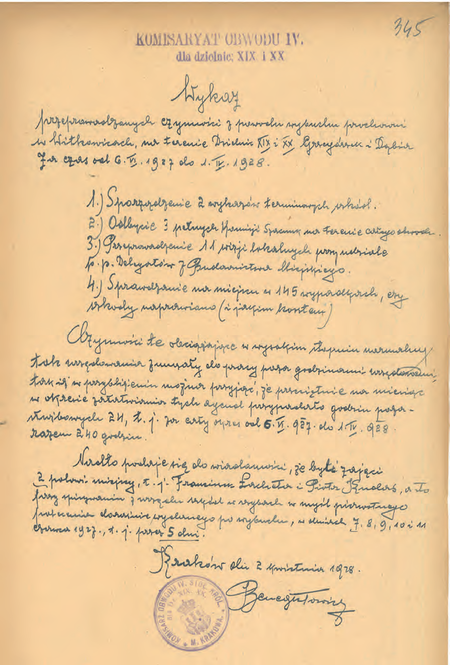 345
KOMISARYAT OBWODU IV.
dla dzielnic: XIX i XX
Wykaz
przeprowadzonych czynności z powodu wybuchu prochowni
w Witkowicach, na terenie Dzielnic XIX i XX Grzegórzek i Dąbia
za czas od 6. VI. 1927 do 1. IV. 1928.
1.) Sporządzenie 2 wykazów terminowych szkód.
2.) Odbycie 3 pełnych Komisji Szacunk. na terenie całego obwodu.
3.) Przeprowadzenie 11 wizji lokalnych przy udziale
p. p. Delegatów z Budownictwa Miejskiego.
4.) Sprawdzanie na miejscu w 145 wypadkach, czy
szkody naprawiono (i jakim kosztem)
Czynności te obciążając w wysokim stopniu normalny
tok urzędowania zmuszały do pracy poza godzinami
tak, iż w przybliżeniu można przyjąć, że przeciętnie na miesiąc
w okresie załatwiania tych agend przypadało godzin poza-
służbowych 24, t. j. za cały okres od 6. VI. 1927 do 1. IV. 1928
razem 240 godzin.
Nadto podaje się do wiadomości, że byli zajęci
2 polowi miejscy, t. j. Franciszek i Piotr, a to
przy spisywaniu z urzędu szkód w szybach w myśl pierwotnego
polecenia doraźnie wydanego po wybuchu, w dniach 7, 8, 9, 10 i 11
czerwca 1927, t. j. przez 5 dni.
Kraków dn. 2 kwietnia 1928.
M. KRAKOWA